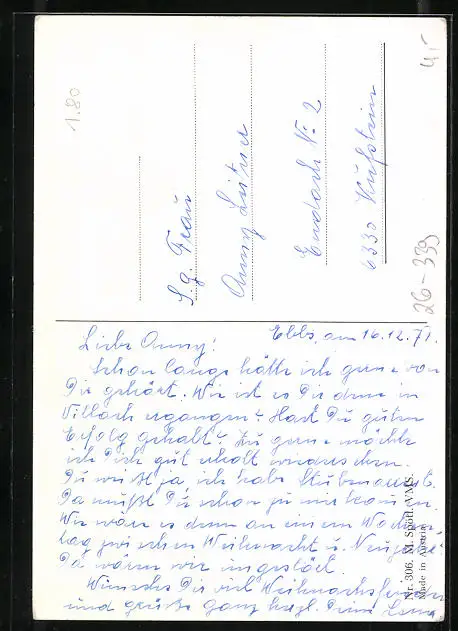 1.80
4,-
S.g. Frau
Anny Leitner
Endach Nr. 2
6330 Kufstein
26-339
Ebbs, am 16.12.71.
Liebe Anny!
Schon lange hätte ich gerne von
Dir gehört. Wie ist es Dir denn in
Villach ergangen? Hast Du guten
Erfolg gehabt? Zu gerne möchte
ich Dich gut erholt wiedersehen.
Du weißt ja, ich habe Stubenarrest.
Da mußt Du schon zu mir kommen.
Wie wäre es denn an einem Wochen-
tag zwischen Weihnacht u. Neujahr?
Da wären wir ungestört.
Wünsche Dir viel Weihnachtsfreuden
und grüße ganz herzl. Deine
Nr. 306. M. Spötl, VMS.
Made in Austria